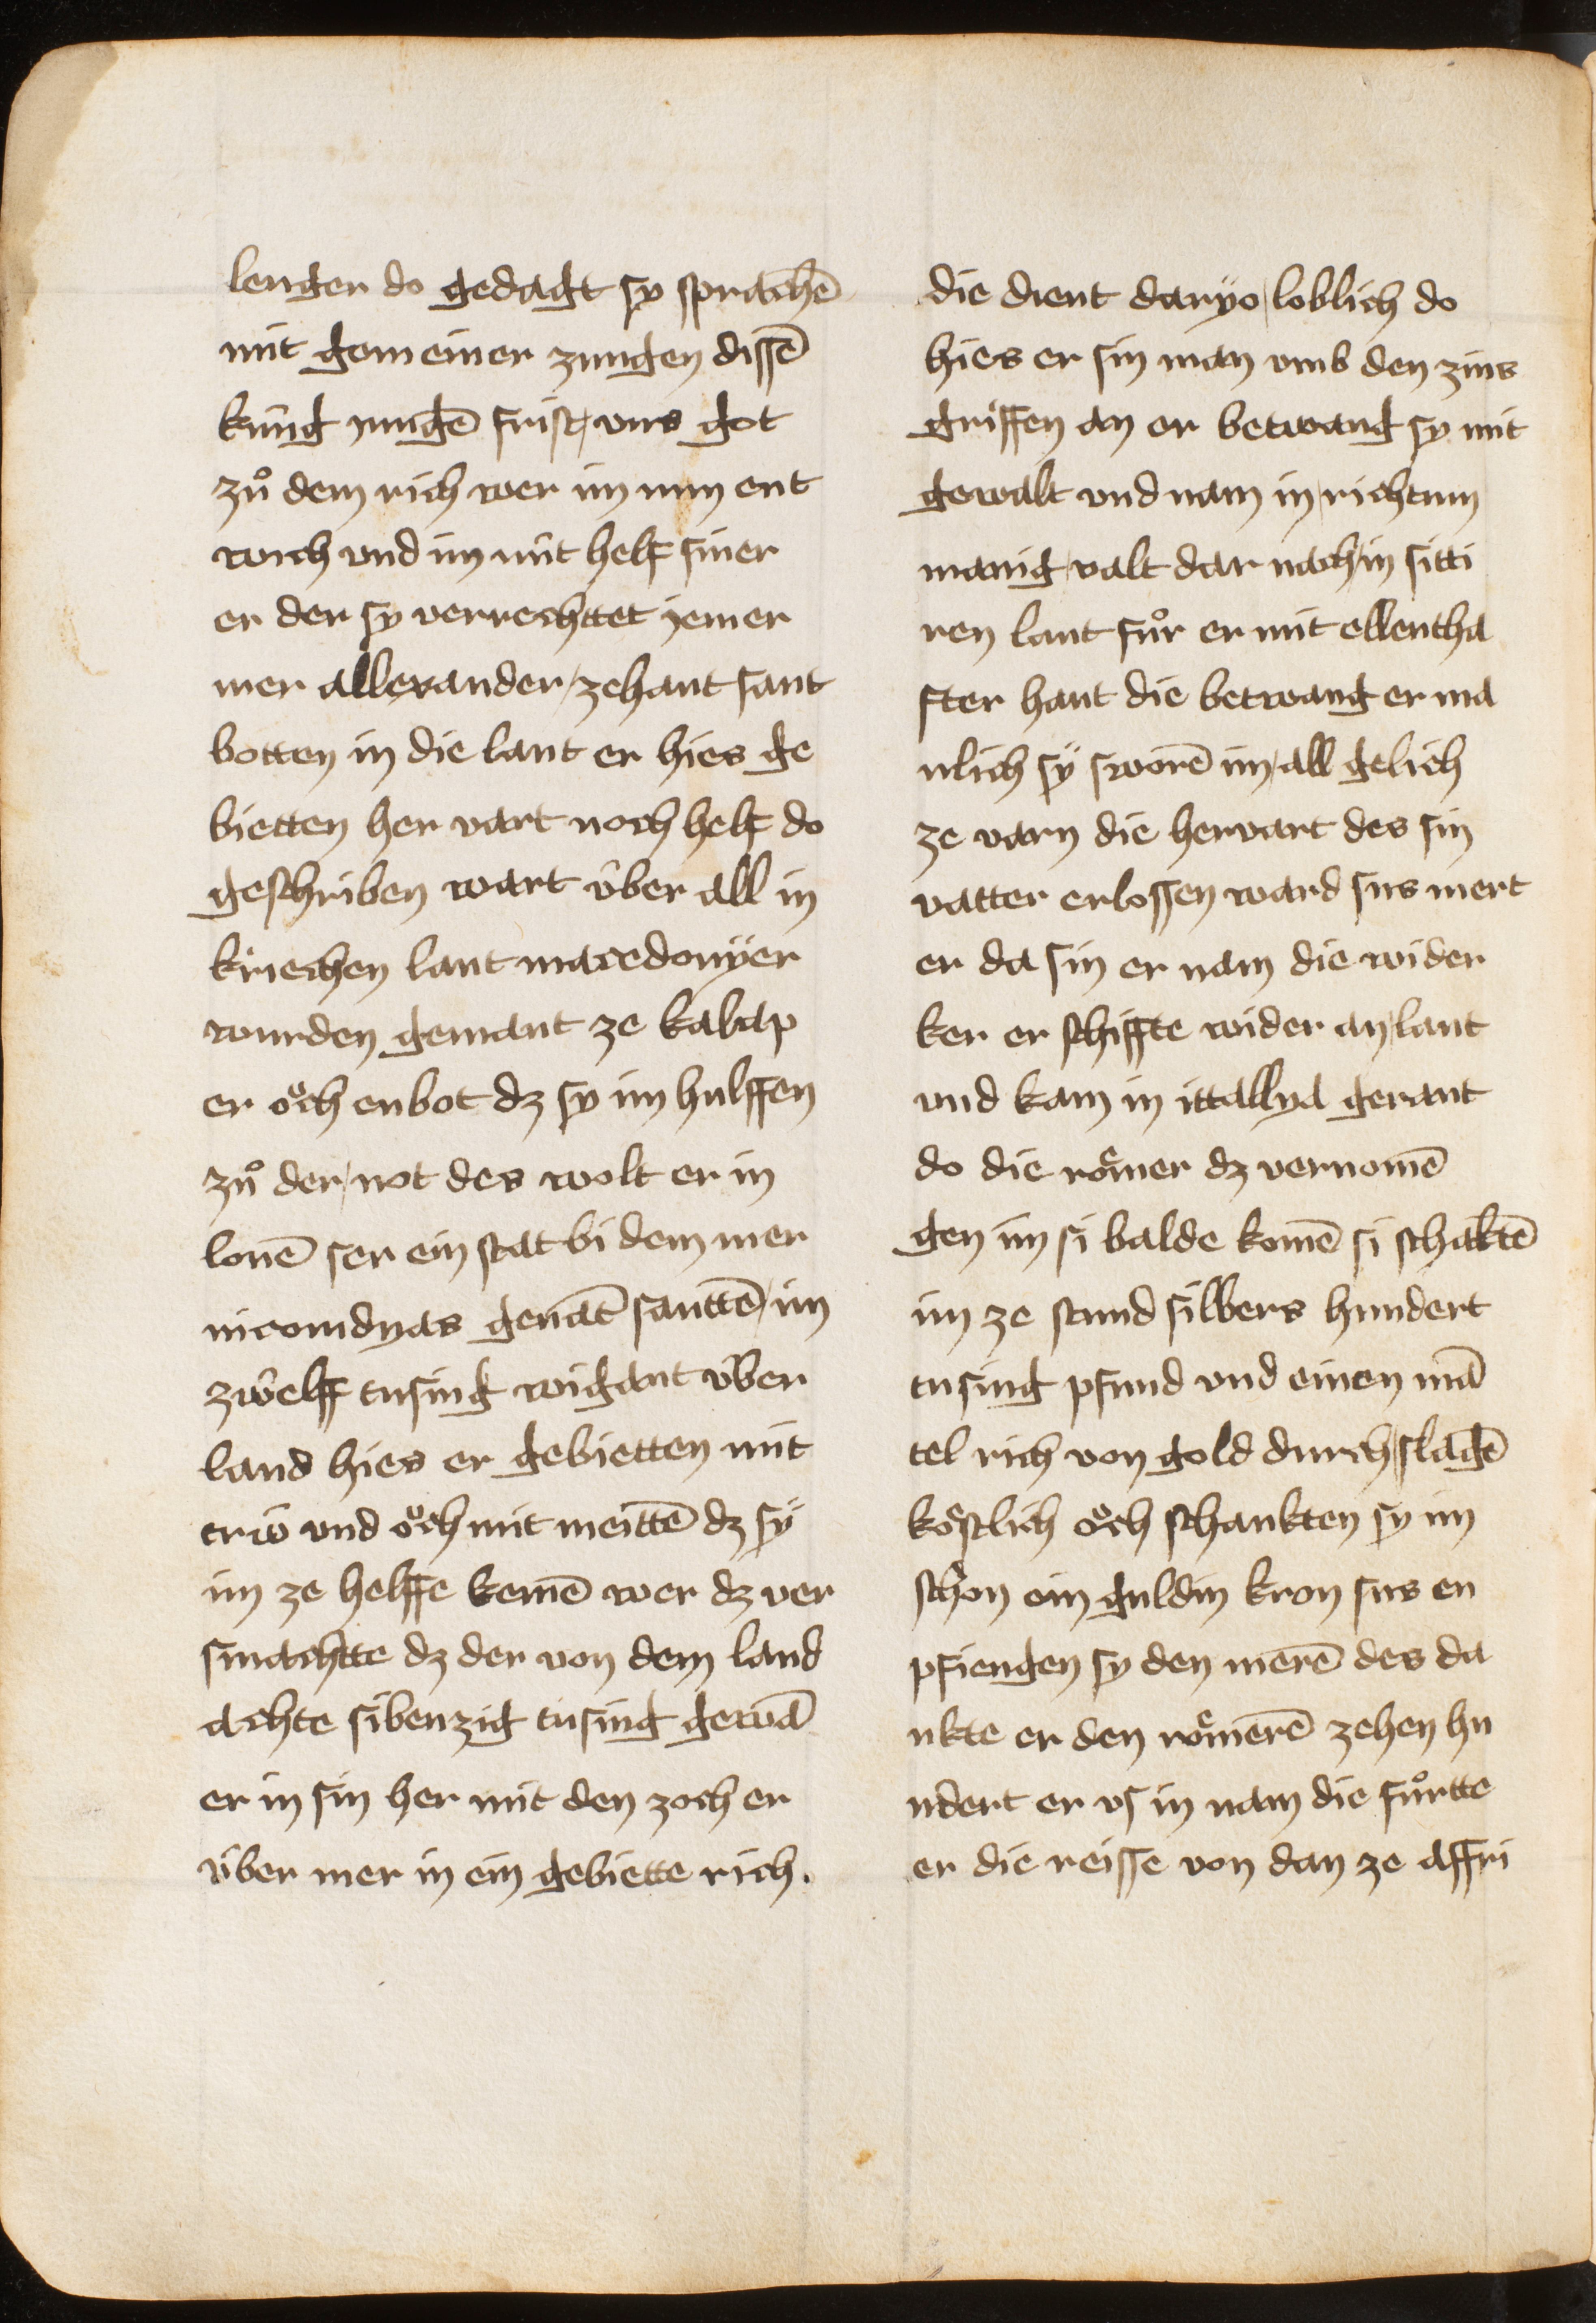 lenger do gedagt sy sprachē
mit gemeiner zungen dissē
kúng jungē frist vns got
zů dem rich wer im nun ent
wich vnd im nút helf siner
er der sy verrechttet jemer
mer allexander zehant sant
botten in die lant er hies ge
bietten her vart noch helf do
geschriben wart v́ber all in
kriechen lant macedonÿer
wurden gemant ze kalap
er o͗ch enbot dz sy im hulffen
zů der not des wolt er in
lonē ser ein stat bi dem mer
nicomdyas genāt santtē im
zwelff tusing wigant v́ber
land hies er gebietten mit
trẃ vnd o͗ch mit meittē dz sÿ
im ze helffe kemē wer dz ver
smachtte dz der von dem land
achte sibenzig túsing gewā
er in sin her mit den zoch er
v́ber mer in ein gebiette rich.
die dient daryo loblich do
hies er sin man vmb den zins
griffen an er betwang sy mit
gewalt vnd nam in richtum
manig valt dar nach in sitti
ren lant fůr er mit ellentha
fter hant die betwang er ma
nlich sÿ sworē im all gelich
ze varn die hervart des sin
vatter erlossen ward sus mert
er da sin er nam die wider
ker er schiffte wider an lant
vnd kam in ittallya gerant
do die rômer dz vernomē
gen im si balde komē si schaktē
im ze stund silbers hundert
tusing pfund vnd einen mā
tel rich von gold durch slagē
kôstlich o͗ch schankten sy im
schon ein guldin kron sus en
pfiengen sy den merē des da
nkte er den rômerē zehen hu
ndert er vs in nam die fůrtte
er die reisse von dan ze affri